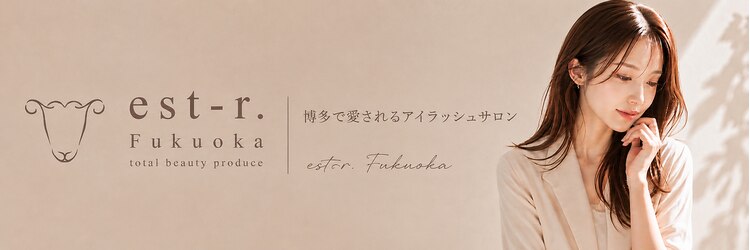 est-r.
Fukuoka
total beauty produce
博多で愛されるアイラッシュサロン
est-r. Fukuoka